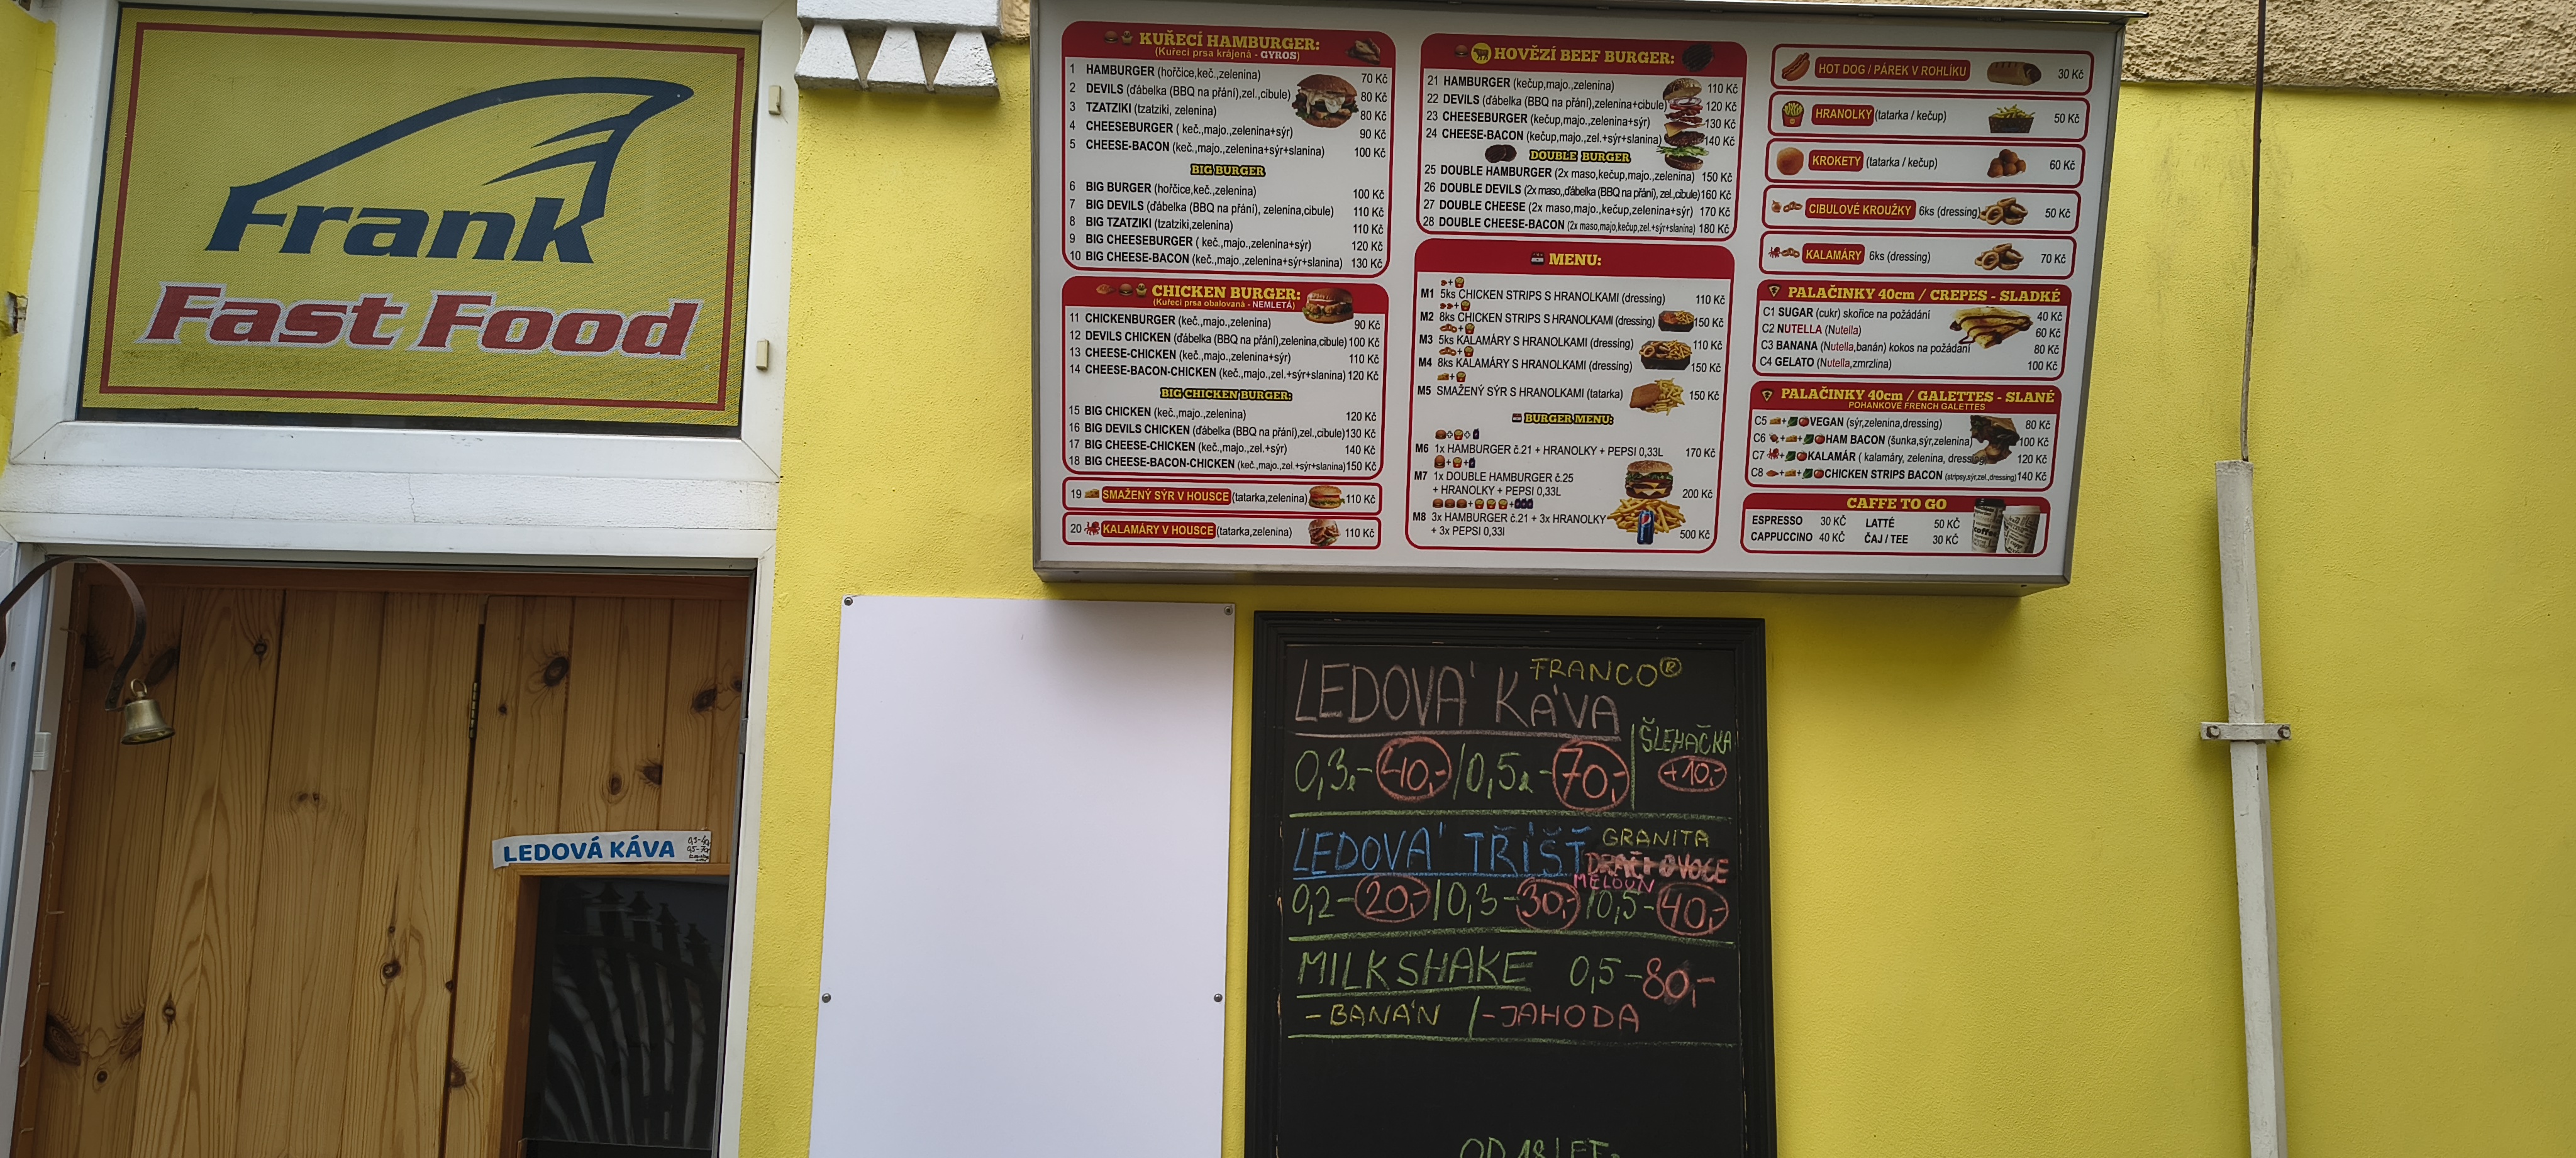 Frank
Fast Food
LEDOVÁ KÁVA
KUŘECÍ HAMBURGER:
(Kuřecí prsa krájená - GYROS)
1 HAMBURGER (hořčice,keč.,zelenina) 70 Kč
2 DEVILS (ďábelka (BBQ na přání),zel.,cibule) 80 Kč
3 TZATZIKI (tzatziki, zelenina) 80 Kč
4 CHEESEBURGER ( keč.,majo.,zelenina+sýr) 90 Kč
5 CHEESE-BACON (keč.,majo.,zelenina+sýr+slanina) 100 Kč
BIG BURGER
6 BIG BURGER (hořčice,keč.,zelenina) 100 Kč
7 BIG DEVILS (ďábelka (BBQ na přání), zelenina,cibule) 110 Kč
8 BIG TZATZIKI (tzatziki,zelenina) 110 Kč
9 BIG CHEESEBURGER ( keč.,majo.,zelenina+sýr) 120 Kč
10 BIG CHEESE-BACON (keč.,majo.,zelenina+sýr+slanina) 130 Kč
CHICKEN BURGER:
(Kuřecí prsa obalovaná - NEMLETÁ)
11 CHICKENBURGER (keč.,majo.,zelenina) 90 Kč
12 DEVILS CHICKEN (ďábelka (BBQ na přání),zelenina,cibule) 100 Kč
13 CHEESE-CHICKEN (keč.,majo.,zelenina+sýr) 110 Kč
14 CHEESE-BACON-CHICKEN (keč.,majo.,zel.+sýr+slanina) 120 Kč
BIG CHICKEN BURGER:
15 BIG CHICKEN (keč.,majo.,zelenina) 120 Kč
16 BIG DEVILS CHICKEN (ďábelka (BBQ na přání),zel.,cibule) 130 Kč
17 BIG CHEESE-CHICKEN (keč.,majo.,zel.+sýr) 140 Kč
18 BIG CHEESE-BACON-CHICKEN (keč.,majo.,zel.+sýr+slanina) 150 Kč
19 SMAŽENÝ SÝR V HOUSCE (tatarka,zelenina) 110 Kč
20 KALAMÁRY V HOUSCE (tatarka,zelenina) 110 Kč
HOVĚZÍ BEEF BURGER:
21 HAMBURGER (kečup,majo.,zelenina) 110 Kč
22 DEVILS (ďábelka (BBQ na přání),zelenina+cibule) 120 Kč
23 CHEESEBURGER (kečup,majo.,zelenina+sýr) 130 Kč
24 CHEESE-BACON (kečup,majo.,zel.+sýr+slanina) 140 Kč
DOUBLE BURGER
25 DOUBLE HAMBURGER (2x maso,kečup,majo.,zelenina) 150 Kč
26 DOUBLE DEVILS (2x maso,,ďábelka (BBQ na přání), zel.,cibule) 160 Kč
27 DOUBLE CHEESE (2x maso,majo.,kečup,zelenina+sýr) 170 Kč
28 DOUBLE CHEESE-BACON (2x maso,majo,kečup,zel.+sýr+slanina) 180 Kč
MENU:
M1 5ks CHICKEN STRIPS S HRANOLKAMI (dressing) 110 Kč
M2 8ks CHICKEN STRIPS S HRANOLKAMI (dressing) 150 Kč
M3 5ks KALAMÁRY S HRANOLKAMI (dressing) 110 Kč
M4 8ks KALAMÁRY S HRANOLKAMI (dressing) 150 Kč
M5 SMAŽENÝ SÝR S HRANOLKAMI (tatarka) 150 Kč
BURGER MENU:
M6 1x HAMBURGER č.21 + HRANOLKY + PEPSI 0,33L 170 Kč
M7 1x DOUBLE HAMBURGER č.25
+ HRANOLKY + PEPSI 0,33L 200 Kč
M8 3x HAMBURGER č.21 + 3x HRANOLKY
+ 3x PEPSI 0,33l 500 Kč
HOT DOG / PÁREK V ROHLÍKU 30 Kč
HRANOLKY (tatarka / kečup) 50 Kč
KROKETY (tatarka / kečup) 60 Kč
CIBULOVÉ KROUŽKY 6ks (dressing) 50 Kč
KALAMÁRY 6ks (dressing) 70 Kč
PALAČINKY 40cm / CREPES - SLADKÉ
C1 SUGAR (cukr) skořice na požádání 40 Kč
C2 NUTELLA (Nutella) 60 Kč
C3 BANANA (Nutella,banán) kokos na požádaní 80 Kč
C4 GELATO (Nutella,zmrzlina) 100 Kč
PALAČINKY 40cm / GALETTES - SLANÉ
POHANKOVÉ FRENCH GALETTES
C5 VEGAN (sýr,zelenina,dressing) 80 Kč
C6 HAM BACON (šunka,sýr,zelenina) 100 Kč
C7 KALAMÁR ( kalamáry, zelenina, dressing) 120 Kč
C8 CHICKEN STRIPS BACON (stripsy,sýr,zel.,dressing) 140 Kč
CAFFE TO GO
ESPRESSO 30 KČ LATTÉ 50 KČ
CAPPUCCINO 40 KČ ČAJ / TEE 30 KČ
FRANCO®
LEDOVÁ KÁVA
0,3l-40,-/0,5l-70,- ŠLEHAČKA +10,-
LEDOVÁ TŘÍŠŤ GRANITA
DRAČÍ OVOCE
MELOUN
0,2-20,-/0,3-30,-/0,5-40,-
MILKSHAKE 0,5-80,-
-BANÁN /-JAHODA
OD 18 LET